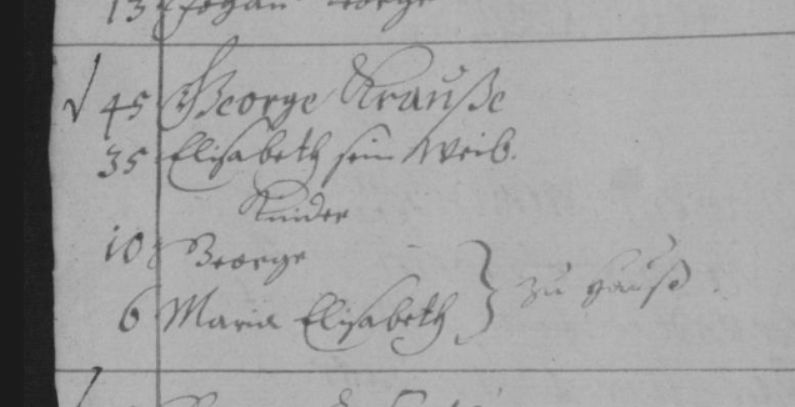 13 Johan George
45 George Krauße
35 Elisabeth sein Weib.
Kinder
10 George
6 Maria Elisabeth } zu Hauß